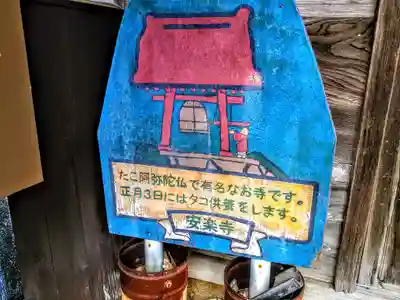 たこ阿弥陀仏で有名なお寺です。
正月3日にはタコ供養をします。
安楽寺